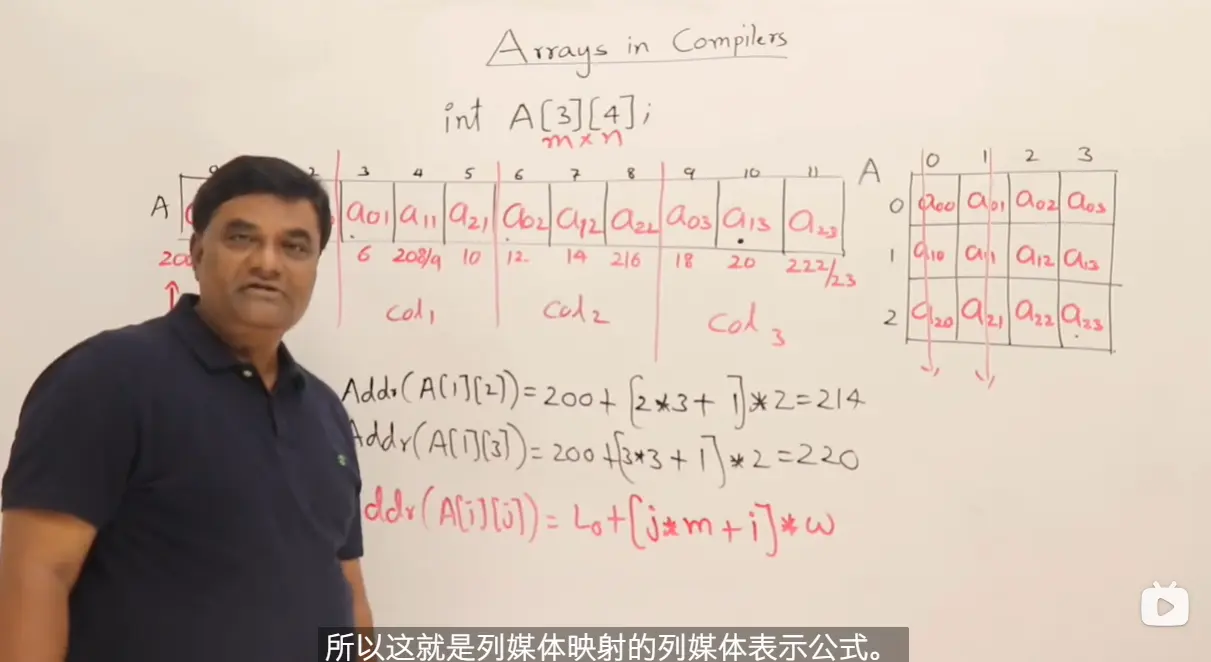 Arrays in Compilers
int A[3][4];
m×n
2 3 4 5 6 7 8 9 10 11
A a01 a11 a21 a02 a12 a22 a03 a13 a23
200 6 208/9 10 12 14 216 18 20 222/23
col1 col2 col3
A 0 1 2 3
0 a00 a01 a02 a03
1 a10 a11 a12 a13
2 a20 a21 a22 a23
Addr(A[1][2])=200+[2*3+1]*2=214
Addr(A[1][3])=200+[3*3+1]*2=220
ddr(A[i][j])=L0+[j*m+i]*w
所以这就是列媒体映射的列媒体表示公式。